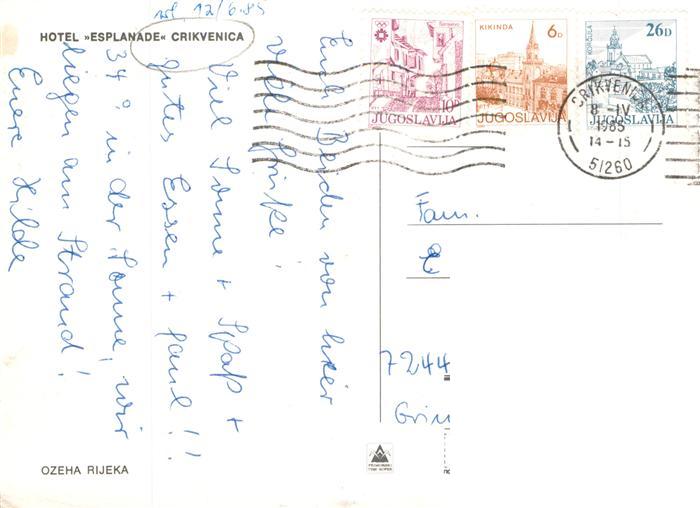 erl. 12/6.85
HOTEL »ESPLANADE« CRIKVENICA
Euch Beiden von hier
viele Grüße!
Viel Sonne + Spaß +
gutes Essen + faul!!
34° in der Sonne, wir
liegen am Strand!
Eure Hilde
OZEHA RIJEKA
Sarajevo
10D
JUGOSLAVIJA
KIKINDA
6D
JUGOSLAVIJA
KORČULA
26D
JUGOSLAVIJA
CRIKVENICA
8-IV
1985
14-15
51260
Fam.
7244